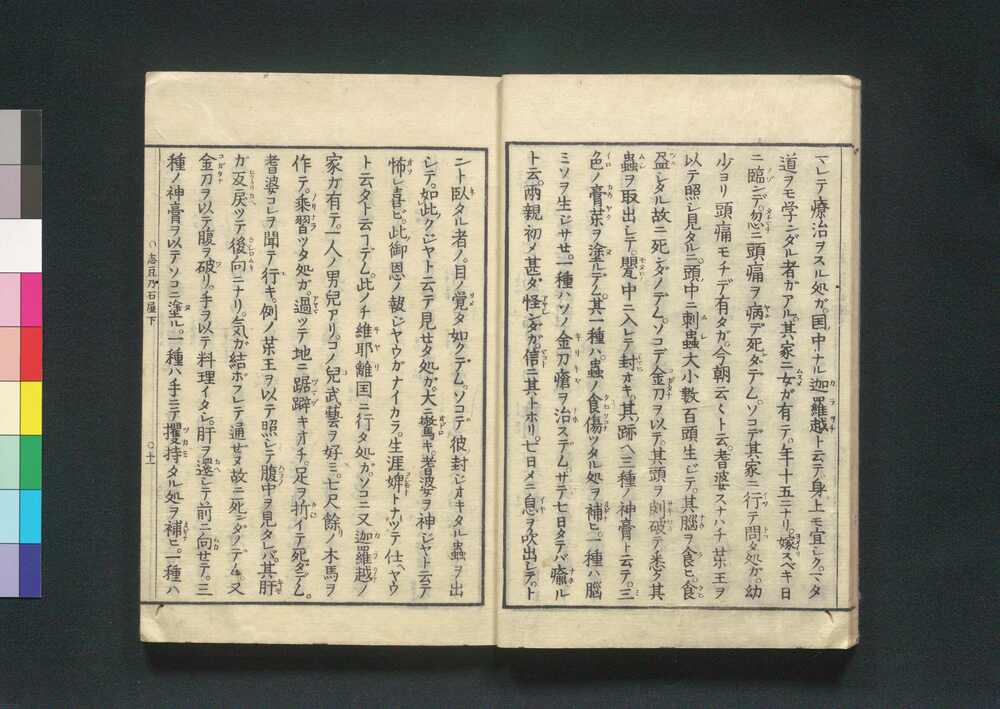 マレテノ療治ヲスル処ガ。国中ナル迦羅越ト云テ身上モ宜シク。マタ
道ヲモ学ンダル者ガアル。其家ニ女ガ有テ。年十五ニナリ。嫁スベキ日
ニ臨ンデ。忽ニ頭痛ヲ病デ死ダデム。ソコデ其家ニ行テ問タ処ガ。幼
少ヨリ頭痛モチデ有タガ。今朝云々ト云。耆婆スナハチ薬王ヲ
以テ照シ見タルニ。頭中ニ刺蟲大小数百頭生ジテ。其腦ヲ食ヒ。食
盡シタル故ニ死ンダノデム。ソコデ金刀ヲ以テ。其頭ヲ剖破テ悉ク其
蟲ヲ取出シテ。甖中ニ入レテ封オキ。其跡ヘ三種ノ神膏ト云テ。三
色ノ膏薬ヲ塗ルデム。其一種ハ。蟲ノ食傷ツタル処ヲ補ヒ。一種ハ腦
ミソヲ生ジサセ。一種ハソノ金刀瘡ヲ治スデム。サテ七日タテバ瘉ル
ト云。両親初メ甚ダ怪シダガ。信ニ其トホリ。七日メニ息ヲ吹出シテ。ト
ント臥タル者ノ。目ノ覚タ如クデム。ソコデ彼封ジオキタル蟲ヲ出
シテ。如此クジヤト云テ見セタ処ガ。大ニ驚キ。耆婆ヲ神ジヤト云テ
怖レ喜ビ。此御恩ノ報ジヤウガナイカラ。生涯婢トナツテ仕ヘヤウ
ト云タト云コデム。此ノチ維耶離国ニ行タ処ガ。ソコニ又迦羅越ノ
家ガ有テ。一人ノ男兒アリ。コノ兒武藝ヲ好ミ。七尺餘ノ木馬ヲ
作テ。乗習ツタ処ガ。過ツテ地ニ踞躃キオチ。足ヲ折イテ死ダデム。
耆婆コレヲ聞テ行キ。例ノ薬王ヲ以テ照シテ腹中ヲ見タレバ。其肝
ガ反戻ツテ後向ニナリ。気ガ結ボフレテ通セヌ故ニ死デダノデム。又
金刀ヲ以テ腹ヲ破リ。手ヲ以テ料理イタシ。肝ヲ還シテ前ニ向セテ。三
種ノ神膏ヲ以テソコニ塗ル。一種ハ手ニテ攫持タル処ヲ補ヒ。一種ハ
志豆乃石屋下
十一